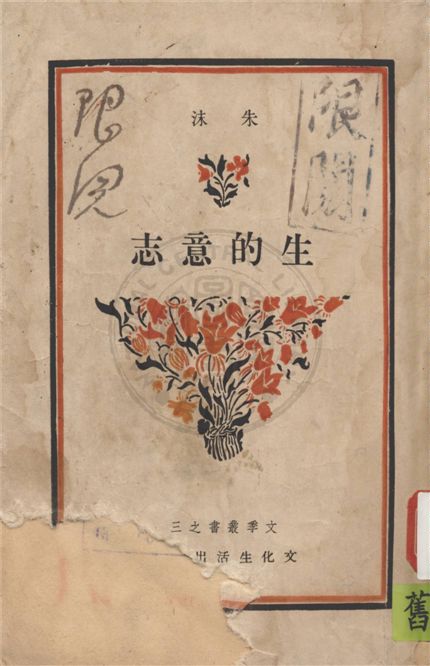 朱洙
生的意志
文季叢書之三
文化生活出
限閱
限閱
舊